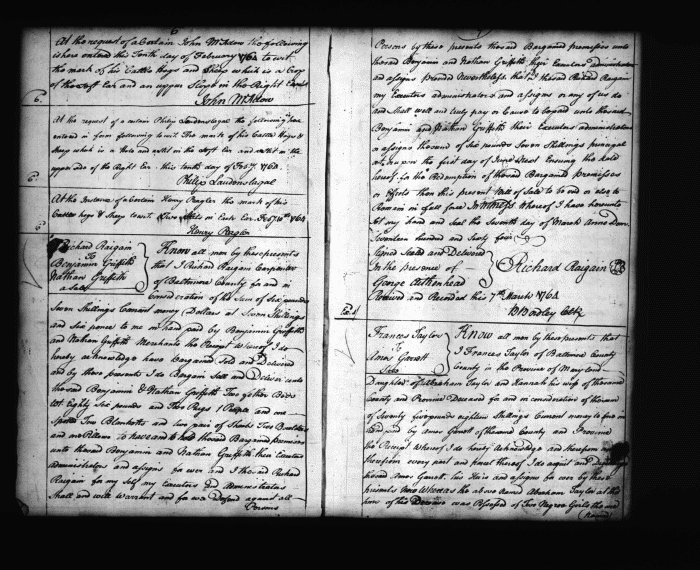 At the request of a Certain John McAdow the following
is here entered this Tenth day of February 1764 to wit
the mark of his Cattle Hogs and Sheep which is a Crop
of the Left Ear and an upper in the Right
John McAdow
6.
At the request of a certain Philip Laudenslagal the following was
entered in form following to wit. The mark of his Cattle Hogs &
Sheep which is a Hole and in the Left Ear and in the
upper side of the Right Ear. this tenth day of Feby. 1764
Philip Laudenslagal
6d.
At the Instance of a Certain Henry Ragler the mark of his
Cattle hogs & Sheep to wit. Two in Each Ear Feby 10th 1764
6d
Henry Ragler
Richard Raigain
To
Benjamin Griffith
Nathan Griffith
a Sale
Know all men by these presents
that I Richard Raigain Carpenter
of Baltimore County for and in
Consideration of the Sum of Six pounds
Seven Shillings Currant money Dollars at Seven Shillings
and Six pence to me in hand paid by Benjamin Griffith
and Nathan Griffith Merchants the Receipt Whereof I do
hereby acknowledge have Bargained Sold and Delivered
and by these presents I do Bargain Sell and Deliver unto
the said Benjamin & Nathan Griffith Two feather Beds
wt Eighty Six pounds and Two Rugs 1 Purple and one
Spotted Two Blanketts and two pair of Sheets Two Boulsters
and one Pillow To have and to hold the said Bargained premises
unto the said Benjamin and Nathan Griffith their Executors
administrators and assigns for ever and I the said Richard
Raigain for my Self my Executors & Administrators
Shall and will Warrant and for ever Defend against all
Persons
Persons by these presents the said Bargained premises unto
the said Benjamin and Nathan Griffith their Executors administrators
and assigns Provided Nevertheless that I the said Richard Raigain
my Executors administrators and assigns or any of us do
and Shall well and truly pay or Cause to be paid unto the said
Benjamin and Nathan Griffith their Executors administrators
or assigns the sum of Six pounds Seven Shillings
upon the first day of June Next Ensuing the date
hereof for the Redemption of the said Bargained premises
or Effects then this present Bill of Sale to be void or else to
Remain in full force In Witness whereof I have hereunto
Set my hand and Seal the Seventh day of March Anno Dom.
Seventeen hundred and Sixty four
Signed Sealed and Delivered
In the presence of
George Aitkenhead
Richard Raigain
Received and Recorded this 7th March 1764
B Bordley Clk
Frances Taylor
To
Amos Garrett
Sale
Know all men by these presents that
I Frances Taylor of Baltimore County
County in the Province of Maryland
Daughter of Abraham Taylor and Hannah his wife of the said
County and Province Deceased for and in consideration of the sum
of Seventy five pounds eighteen Shillings Currant money to me in
hand paid by Amos Garrett of the said County and Province
the Receipt Whereof I do hereby Acknowledge and
therefrom every part and parcel thereof I do acquit and
the said Amos Garrett his Heirs and assigns for ever by these
presents Now Whereas the above named Abraham Taylor at the
time of his Decease was Possessed of Two Negro Girls the one
(Named)